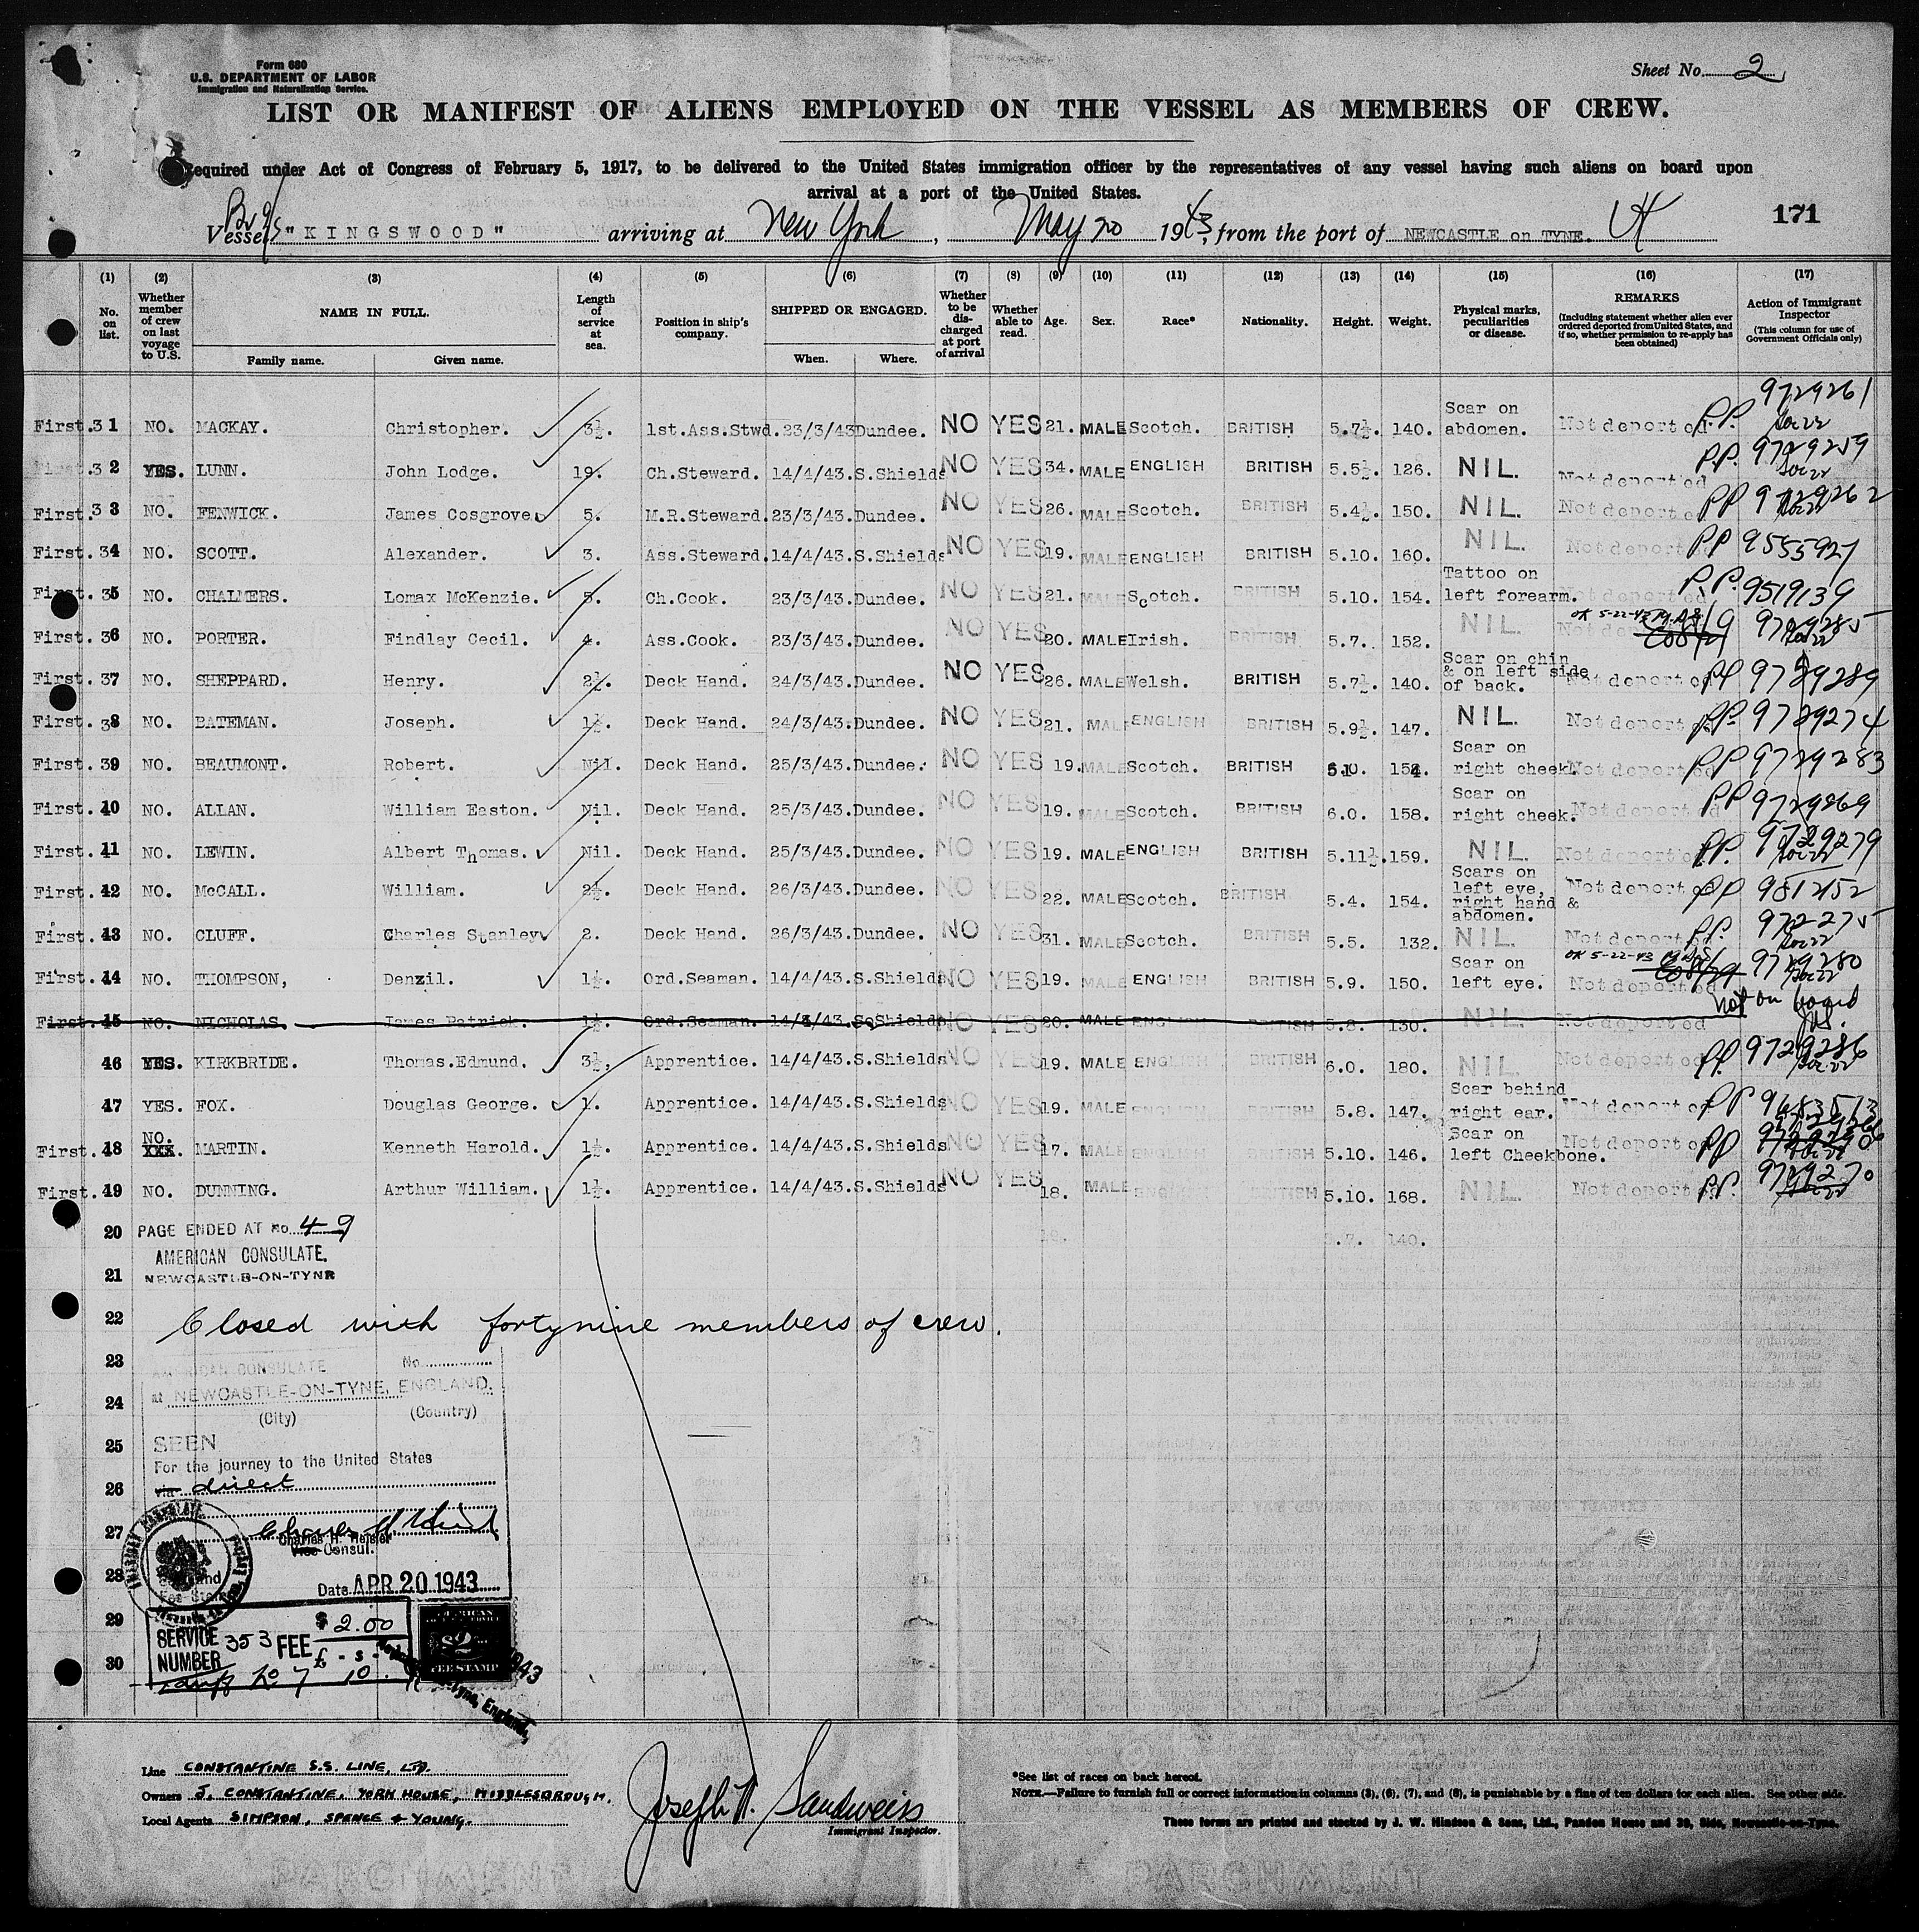 Form 680
U.S. DEPARTMENT OF LABOR
Immigration and Naturalization Service.
Sheet No. 2
LIST OR MANIFEST OF ALIENS EMPLOYED ON THE VESSEL AS MEMBERS OF CREW.
Required under Act of Congress of February 5, 1917, to be delivered to the United States immigration officer by the representatives of any vessel having such aliens on board upon
arrival at a port of the United States.
Vessel "KINGSWOOD" arriving at New York, May 20 1943, from the port of NEWCASTLE on TYNE. 171
(1) (2) (3) (4) (5) (6) (7) (8) (9) (10) (11) (12) (13) (14) (15) (16) (17)
No. on list. Whether member of crew on last voyage to U.S. NAME IN FULL. Family name. Given name. Length of service at sea. Position in ship's company. SHIPPED OR ENGAGED. When. Where. Whether to be discharged at port of arrival Whether able to read. Age. Sex. Race* Nationality. Height. Weight. Physical marks, peculiarities or disease. REMARKS (Including statement whether alien ever ordered deported from United States, and if so, whether permission to re-apply has been obtained) Action of Immigrant Inspector (This column for use of Government Officials only)
First. 31 NO. MACKAY. Christopher. 3½. 1st.Ass.Stwd. 23/3/43 Dundee. NO YES 21. MALE Scotch. BRITISH 5.7½. 140. Scar on abdomen. Not deported P.P. 9729261
First. 32 YES. LUNN. John Lodge. 19. Ch.Steward. 14/4/43. S.Shields NO YES 34. MALE ENGLISH BRITISH 5.5½. 126. NIL. Not deported P.P. 9729259
First. 33 NO. FENWICK. James Cosgrove. 5. M.R.Steward. 23/3/43 Dundee. NO YES 26. MALE Scotch. BRITISH 5.4½. 150. NIL. Not deported PP 9729262
First. 34 NO. SCOTT. Alexander. 3. Ass.Steward. 14/4/43. S.Shields NO YES 19. MALE ENGLISH BRITISH 5.10. 160. NIL. Not deported PP 9555927
First. 35 NO. CHALMERS. Lomax McKenzie. 5. Ch.Cook. 23/3/43. Dundee. NO YES 21. MALE Scotch. BRITISH 5.10. 154. Tattoo on left forearm. Not deported P.P. 9519139
First. 36 NO. PORTER. Findlay Cecil. 4. Ass.Cook. 23/3/43. Dundee. NO YES 20. MALE Irish. BRITISH 5.7. 152. NIL. OK 5-22-43 9729285
First. 37 NO. SHEPPARD. Henry. 2½. Deck Hand. 24/3/43. Dundee. NO YES 26. MALE Welsh. BRITISH 5.7½. 140. Scar on chin & on left side of back. Not deported PP 9729289
First. 38 NO. BATEMAN. Joseph. 1½. Deck Hand. 24/3/43. Dundee. NO YES 21. MALE ENGLISH BRITISH 5.9½. 147. NIL. Not deported PP. 9729274
First. 39 NO. BEAUMONT. Robert. Nil. Deck Hand. 25/3/43. Dundee. NO YES 19. MALE Scotch. BRITISH 5.10. 154. Scar on right cheek. Not deported PP 9729283
First. 40 NO. ALLAN. William Easton. Nil. Deck Hand. 25/3/43. Dundee. NO YES 19. MALE Scotch. BRITISH 6.0. 158. Scar on right cheek. Not deported PP 9729269
First. 41 NO. LEWIN. Albert Thomas. Nil. Deck Hand. 25/3/43. Dundee. NO YES 19. MALE ENGLISH BRITISH 5.11½. 159. NIL. Not deported PP. 9729279
First. 42 NO. McCALL. William. 2½. Deck Hand. 26/3/43. Dundee. NO YES 22. MALE Scotch. BRITISH 5.4. 154. Scars on left eye, right hand & abdomen. Not deported PP 981252
First. 43 NO. CLUFF. Charles Stanley 2. Deck Hand. 26/3/43. Dundee. NO YES 31. MALE Scotch. BRITISH 5.5. 132. NIL. Not deported PP. 972275
First. 44 NO. THOMPSON, Denzil. 1½. Ord.Seaman. 14/4/43. S.Shields NO YES 19. MALE ENGLISH BRITISH 5.9. 150. Scar on left eye. OK 5-22-43 Not deported 9729280
First. 45 NO. NICHOLAS. James Patrick. 1½. Ord.Seaman. 14/4/43. S.Shields NO YES 20. MALE ENGLISH BRITISH 5.8. 130. NIL. Not deported Not on board
46 YES. KIRKBRIDE. Thomas.Edmund. 3½. Apprentice. 14/4/43. S.Shields NO YES 19. MALE ENGLISH BRITISH 6.0. 180. NIL. Not deported PP. 9729286
47 YES. FOX. Douglas George. 1. Apprentice. 14/4/43. S.Shields NO YES 19. MALE ENGLISH BRITISH 5.8. 147. Scar behind right ear. Not deported PP 9683513
First. 48 NO. XXX. MARTIN. Kenneth Harold. 1½. Apprentice. 14/4/43. S.Shields NO YES 17. MALE ENGLISH BRITISH 5.10. 146. Scar on left Cheekbone. Not deported PP
First. 49 NO. DUNNING. Arthur William. 1½. Apprentice. 14/4/43. S.Shields NO YES 18. MALE ENGLISH BRITISH 5.10. 168. NIL. Not deported PP. 9729270
20 PAGE ENDED AT No. 49
AMERICAN CONSULATE.
21 NEWCASTLE-ON-TYNE
22 Closed with fortynine members of crew.
23 AMERICAN CONSULATE No.
at NEWCASTLE-ON-TYNE, ENGLAND.
24 (City) (Country)
25 SEEN
For the journey to the United States
26 via direct
27 Charles H. Heisler
Vice Consul.
28 Date APR 20 1943
29 SERVICE NUMBER 353 FEE $ 2.00
30 £ - s -
Line CONSTANTINE S.S. LINE, LTD.
Owners J. CONSTANTINE, YORK HOUSE, MIDDLESBOROUGH.
Local Agents SIMPSON, SPENCE & YOUNG.
Joseph H. Sandweiss
Immigrant Inspector.
*See list of races on back hereof.
NOTE.—Failure to furnish full or correct information in columns (3), (6), (7), and (8), is punishable by a fine of ten dollars for each alien. See other side.
These forms are printed and stocked by J. W. Hindson & Sons, Ltd., Pandon House and 29, Side, Newcastle-on-Tyne.